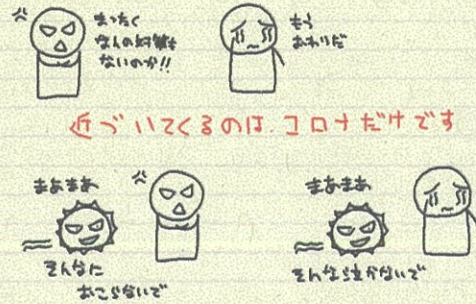 まったく
なんの対策も
ないのか!!
もう
おわりだ
近づいてくるのは、コロナだけです
まあまあ
そんなに
おこらないで
まあまあ
そんな泣かないで